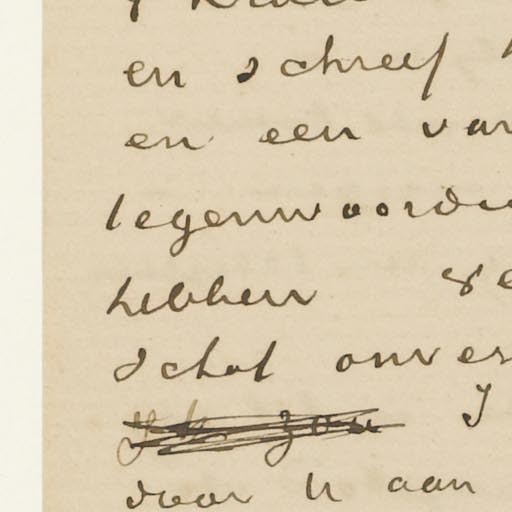 en schreef
en een van
tegenwoordi
hebben ge
schat onver
Ik zou I
door U aan